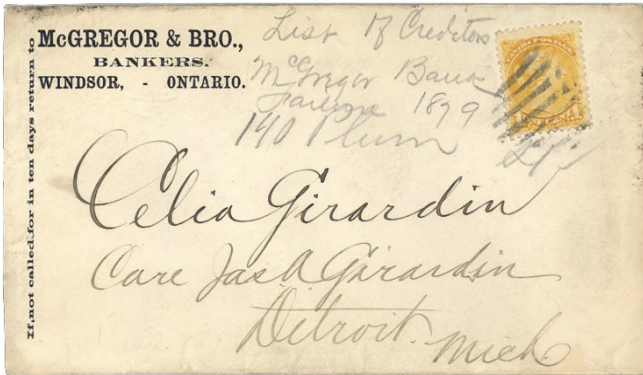 If, not called for in ten days return to
McGREGOR & BRO.,
BANKERS.
WINDSOR, - ONTARIO.
List of Creditors
McGregor Bank
Failure 1879
140 Plum
Celia Girardin
Care Jas A Girardin
Detroit. Mich